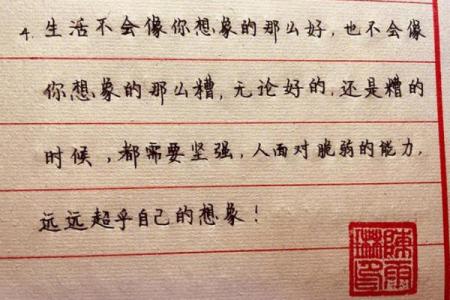 4. 生活不会像你想象的那么好,也不会像
你想象的那么糟,无论好的,还是糟的
时候,都需要坚强,人面对脆弱的能力,
远远超乎自己的想象!